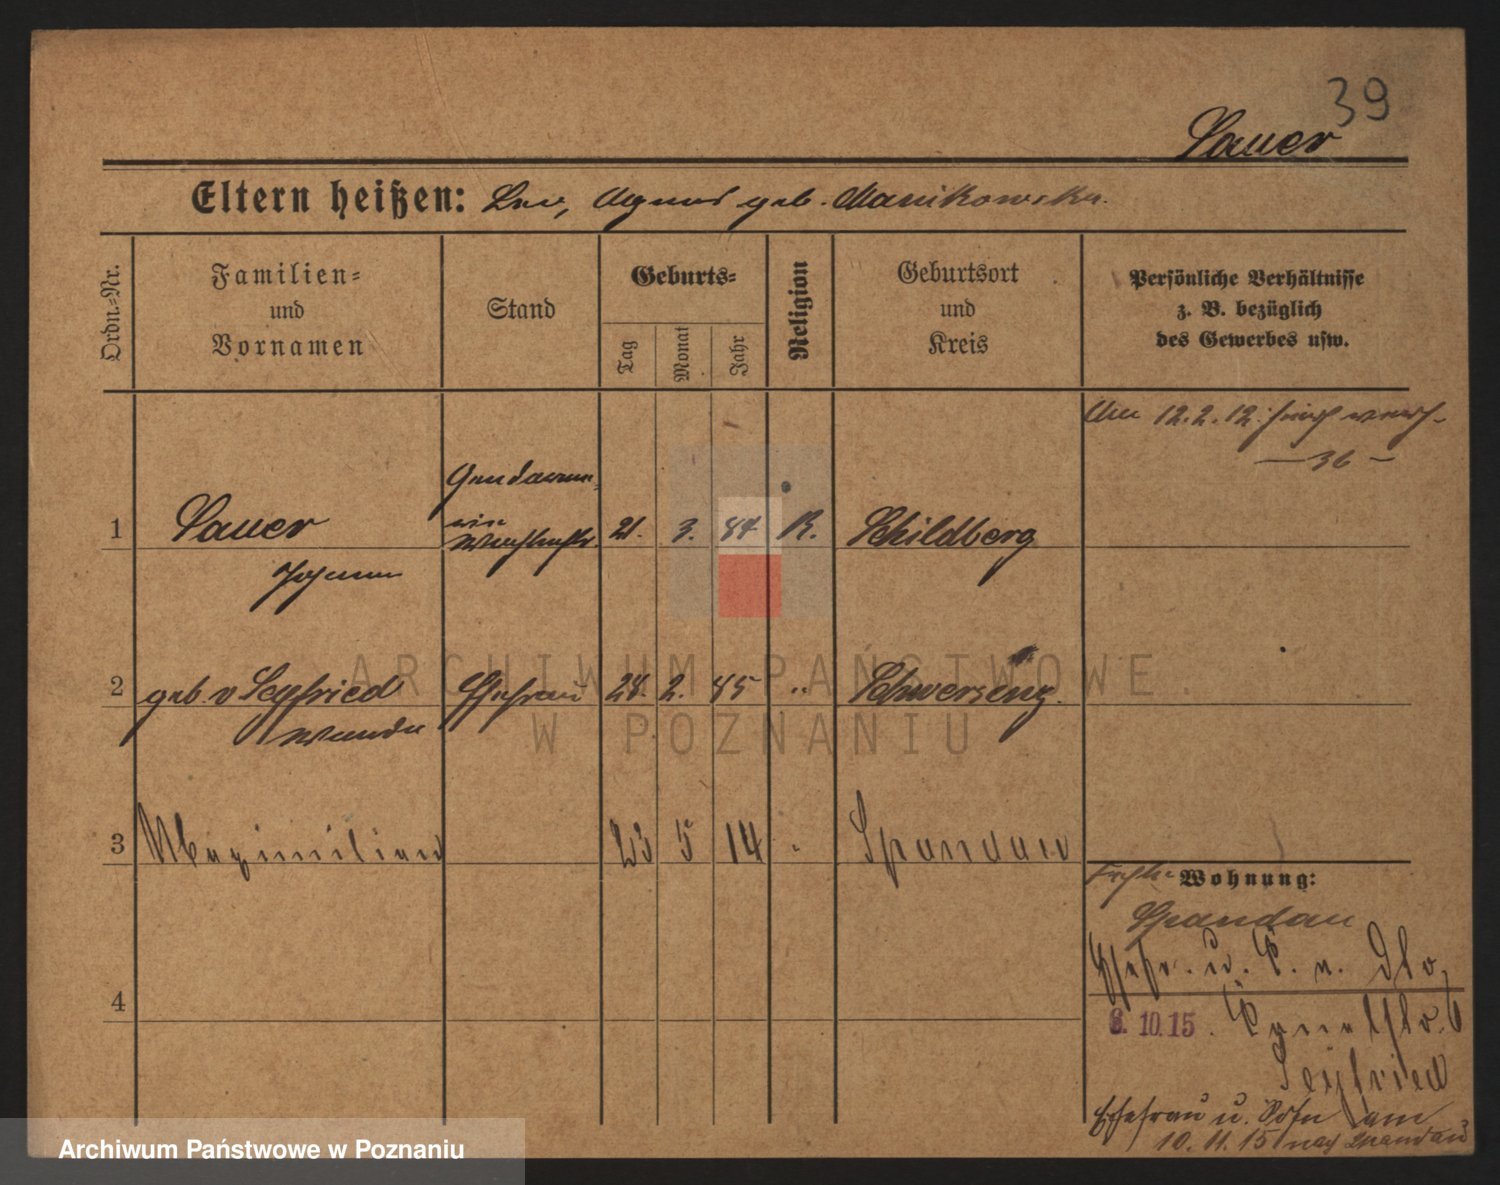 39
Sauer
Eltern heißen: Leo, Agnes geb. Manikowska.
Ordn.-Nr.
Familien-
und
Vornamen
Stand
Geburts-
Tag
Monat
Jahr
Religion
Geburtsort
und
Kreis
Persönliche Verhältnisse
z. B. bezüglich
des Gewerbes usw.
Am 12.2.12.
— 36 —
1 Sauer 21. 3. 84 R. Schildberg
Johann
2 geb. v Seyfried Ehefrau 28. 2. 85 " Schwersenz.
Wanda
3 Maximilian 23 5 14 " Spandau
Wohnung:
Spandau
4
8. 10.15.
Seyfried
Ehefrau u. Sohn am
10. 11. 15 nach Spandau
ARCHIWUM PAŃSTWOWE
W POZNANIU
Archiwum Państwowe w Poznaniu